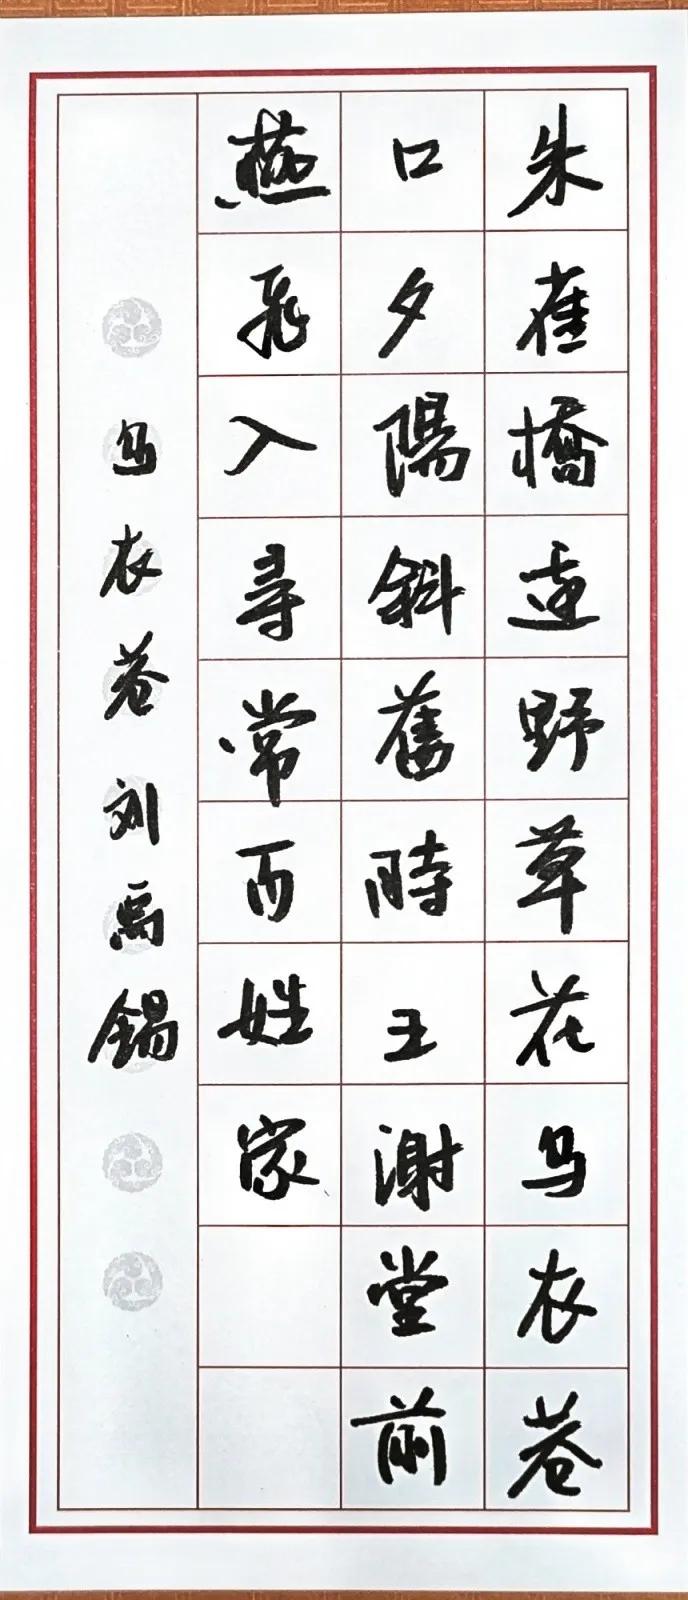 朱雀橋邊野草花烏衣巷
口夕陽斜舊時王謝堂前
燕飛入尋常百姓家
烏衣巷刘禹錫